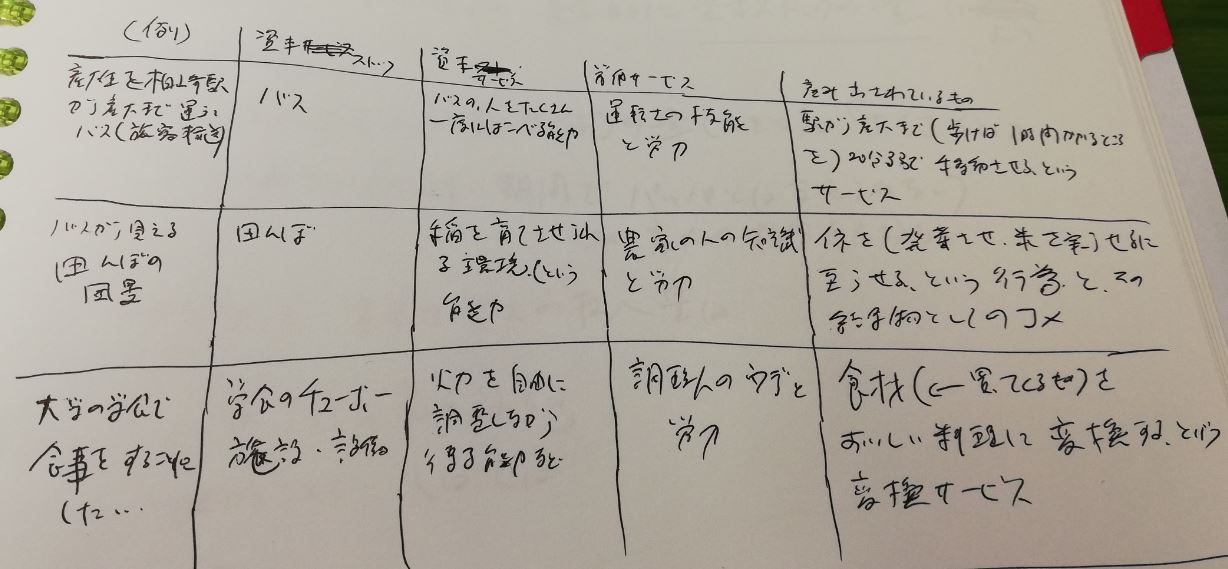 (例)
資本ストック
資本サービス
労働サービス
産み出されているもの
産大生を柏崎駅
から産大まで運ぶ
バス(旅客輸送)
バス
バスの、人をたくさん
一度にはこべる能力
運転士の技能
と労力
駅から産大まで(歩けば1時間かかるところ
を)20分で移動させる、という
サービス
バスから見える
田んぼの
風景
田んぼ
稲を育てさせうれ
る環境、(という
能力
農家の人の知識
と労力
イネを(発芽させ、朱を実)せるに
至らせる、という行為と、その
結果物としてのコメ
大学の学食で
食事をすることに
した…
学食のチューボー
施設・設備
火力を自由に
調整しながら
得る能力など
調理人のウデと
労力
食材(買ってくるもの)を
おいしい料理に変換する、という
変換サービス